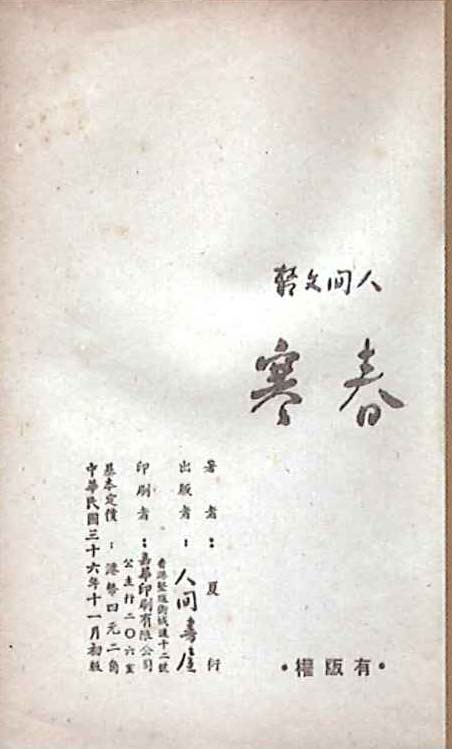 人间文
春寒
•有版權•
著者：夏衍
出版者：人间書屋
香港堅道衛城道十二號
印刷者：嘉華印刷有限公司
公主行二〇六室
基本定價：港幣四元二角
中華民國三十六年十一月初版